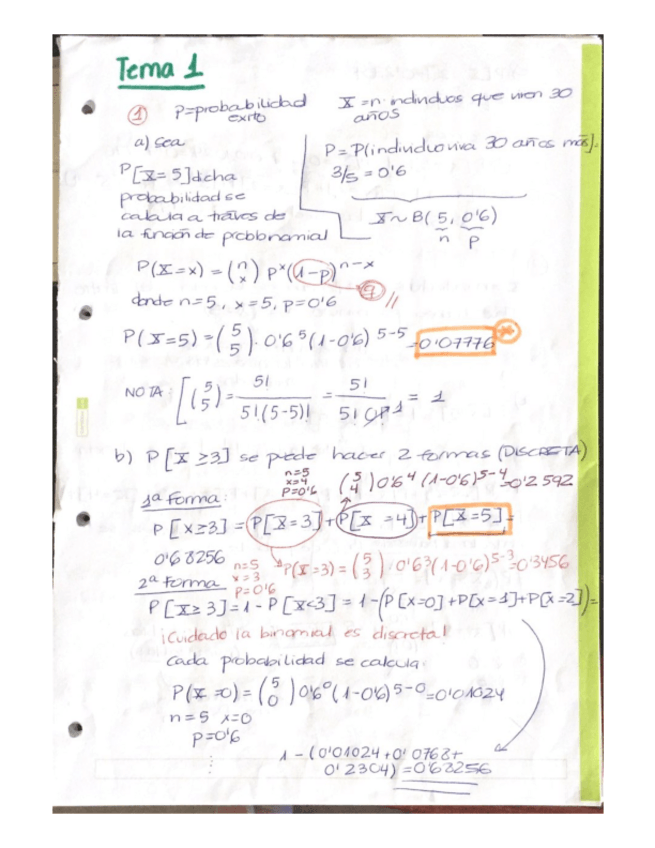 Tema 1
① P=probabilidad exito
X = nº individuos que viven 30 años
a) Sea
P[X=5] dicha
probabilidad se
calcula a través de
la función de prob binomial
P = P(individuo viva 30 años más].
3/5 = 0'6
X ~ B(5, 0'6)
n p
P(X=x) = (n x) p^x (1-p)^n-x
q //
donde n=5, x=5, p=0'6
P(X=5) = (5 5) · 0'6^5 (1-0'6)^5-5 = 0'07776 *
NOTA: [(5 5) = 5! / 5!(5-5)! = 5! / 5! 0! 1 = 1
b) P[X ≥3] se puede hacer 2 formas (DISCRETA)
n=5
x=4
P=0'6
(5 4) 0'6^4 (1-0'6)^5-4 = 0'2592
1ª Forma:
P[x≥3] = P[X=3] + P[X=4] + P[X=5] =
0'68256
n=5
x=3
p=0'6
P(X=3) = (5 3) · 0'6^3 (1-0'6)^5-3 = 0'3456
2ª forma
P[X≥3] = 1 - P[X<3] = 1 - (P[x=0] + P[x=1] + P[x=2]) =
¡Cuidado la binomial es discreta!
Cada probabilidad se calcula:
P(X=0) = (5 0) 0'6^0 (1-0'6)^5-0 = 0'01024
n=5 x=0
p=0'6
1 - (0'01024 + 0'0768 +
0'2304) = 0'68256